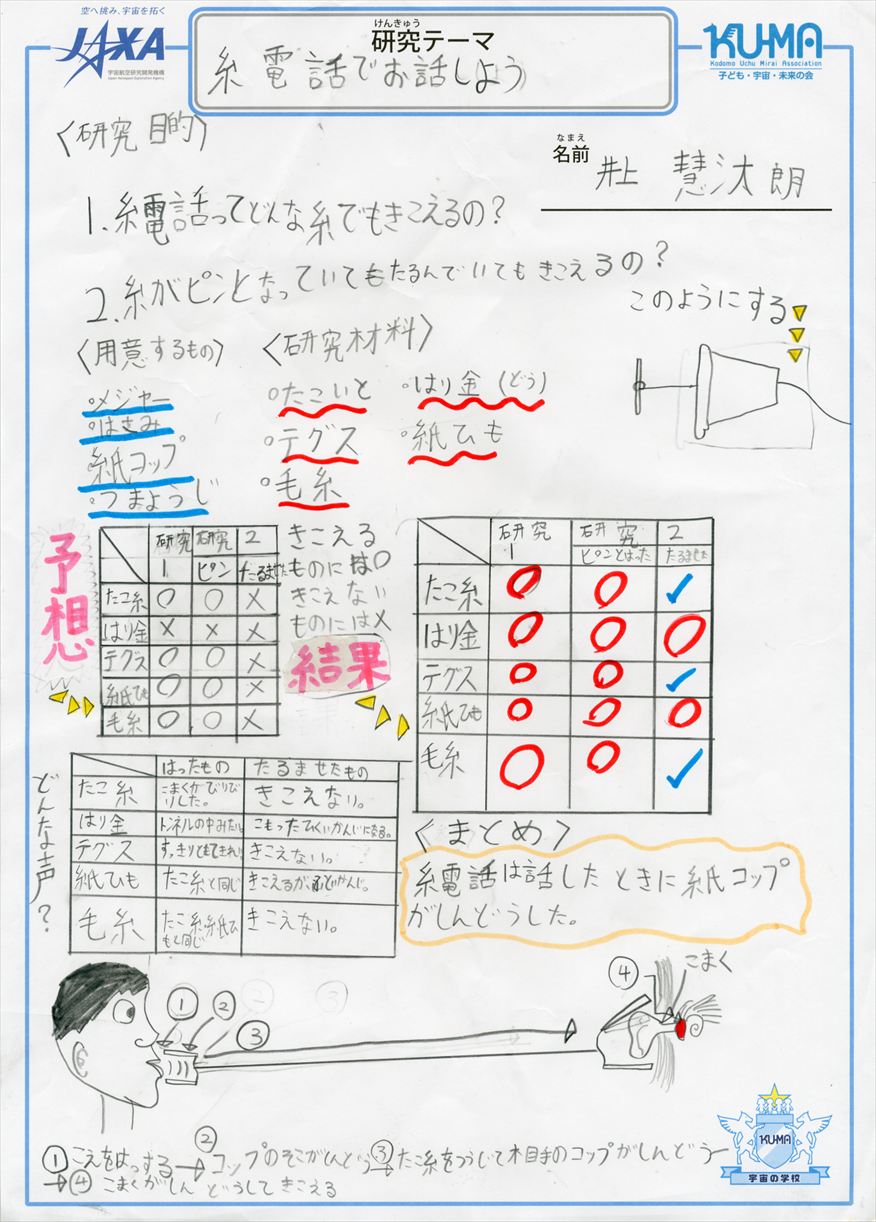 空へ挑み、宇宙を拓く
JAXA
宇宙航空研究開発機構
Japan Aerospace Exploration Agency
けんきゅう
研究テーマ
糸電話でお話しよう
KU-MA
Kodomo Uchu Mirai Association
子ども・宇宙・未来の会
〈研究目的〉
なまえ
名前 井上 慧汰朗
1.糸電話ってどんな糸でもきこえるの？
2.糸がピンとなっていてもたるんでいてもきこえるの？
このようにする
〈用意するもの〉
・メジャー
・はさみ
紙コップ
・つまようじ
〈研究材料〉
・たこいと ・はり金(どう)
・テグス ・紙ひも
・毛糸
予想
研究1 研究 2
ピン たるませた
たこ糸 ○ ○ ×
はり金 × × ×
テグス ○ ○ ×
紙ひも ○ ○ ×
毛糸 ○ ○ ×
きこえる
ものには○
きこえない
ものには×
結果
研究1 研究 2
ピンとはった たるませた
たこ糸 ○ ○ ✓
はり金 ○ ○ ○
テグス ○ ○ ✓
紙ひも ○ ○ ○
毛糸 ○ ○ ✓
どんな声？
はったもの たるませたもの
たこ糸 こまくがびりびりした。 きこえない。
はり金 トンネルの中みたい。 こもったひくいかんじになる。
テグス すっきりとてもきれい きこえない。
紙ひも たこ糸と同じ きこえるが、かんじ。
毛糸 たこ糸・紙ひもと同じ きこえない。
〈まとめ〉
糸電話は話したときに紙コップ
がしんどうした。
① ② ③ ④ こまく
①こえをはっする→②コップのそこがしんどう→③たこ糸をつうじて木目手のコップがしんどう
→④こまくがしんどうしてきこえる
KU-MA
宇宙の学校